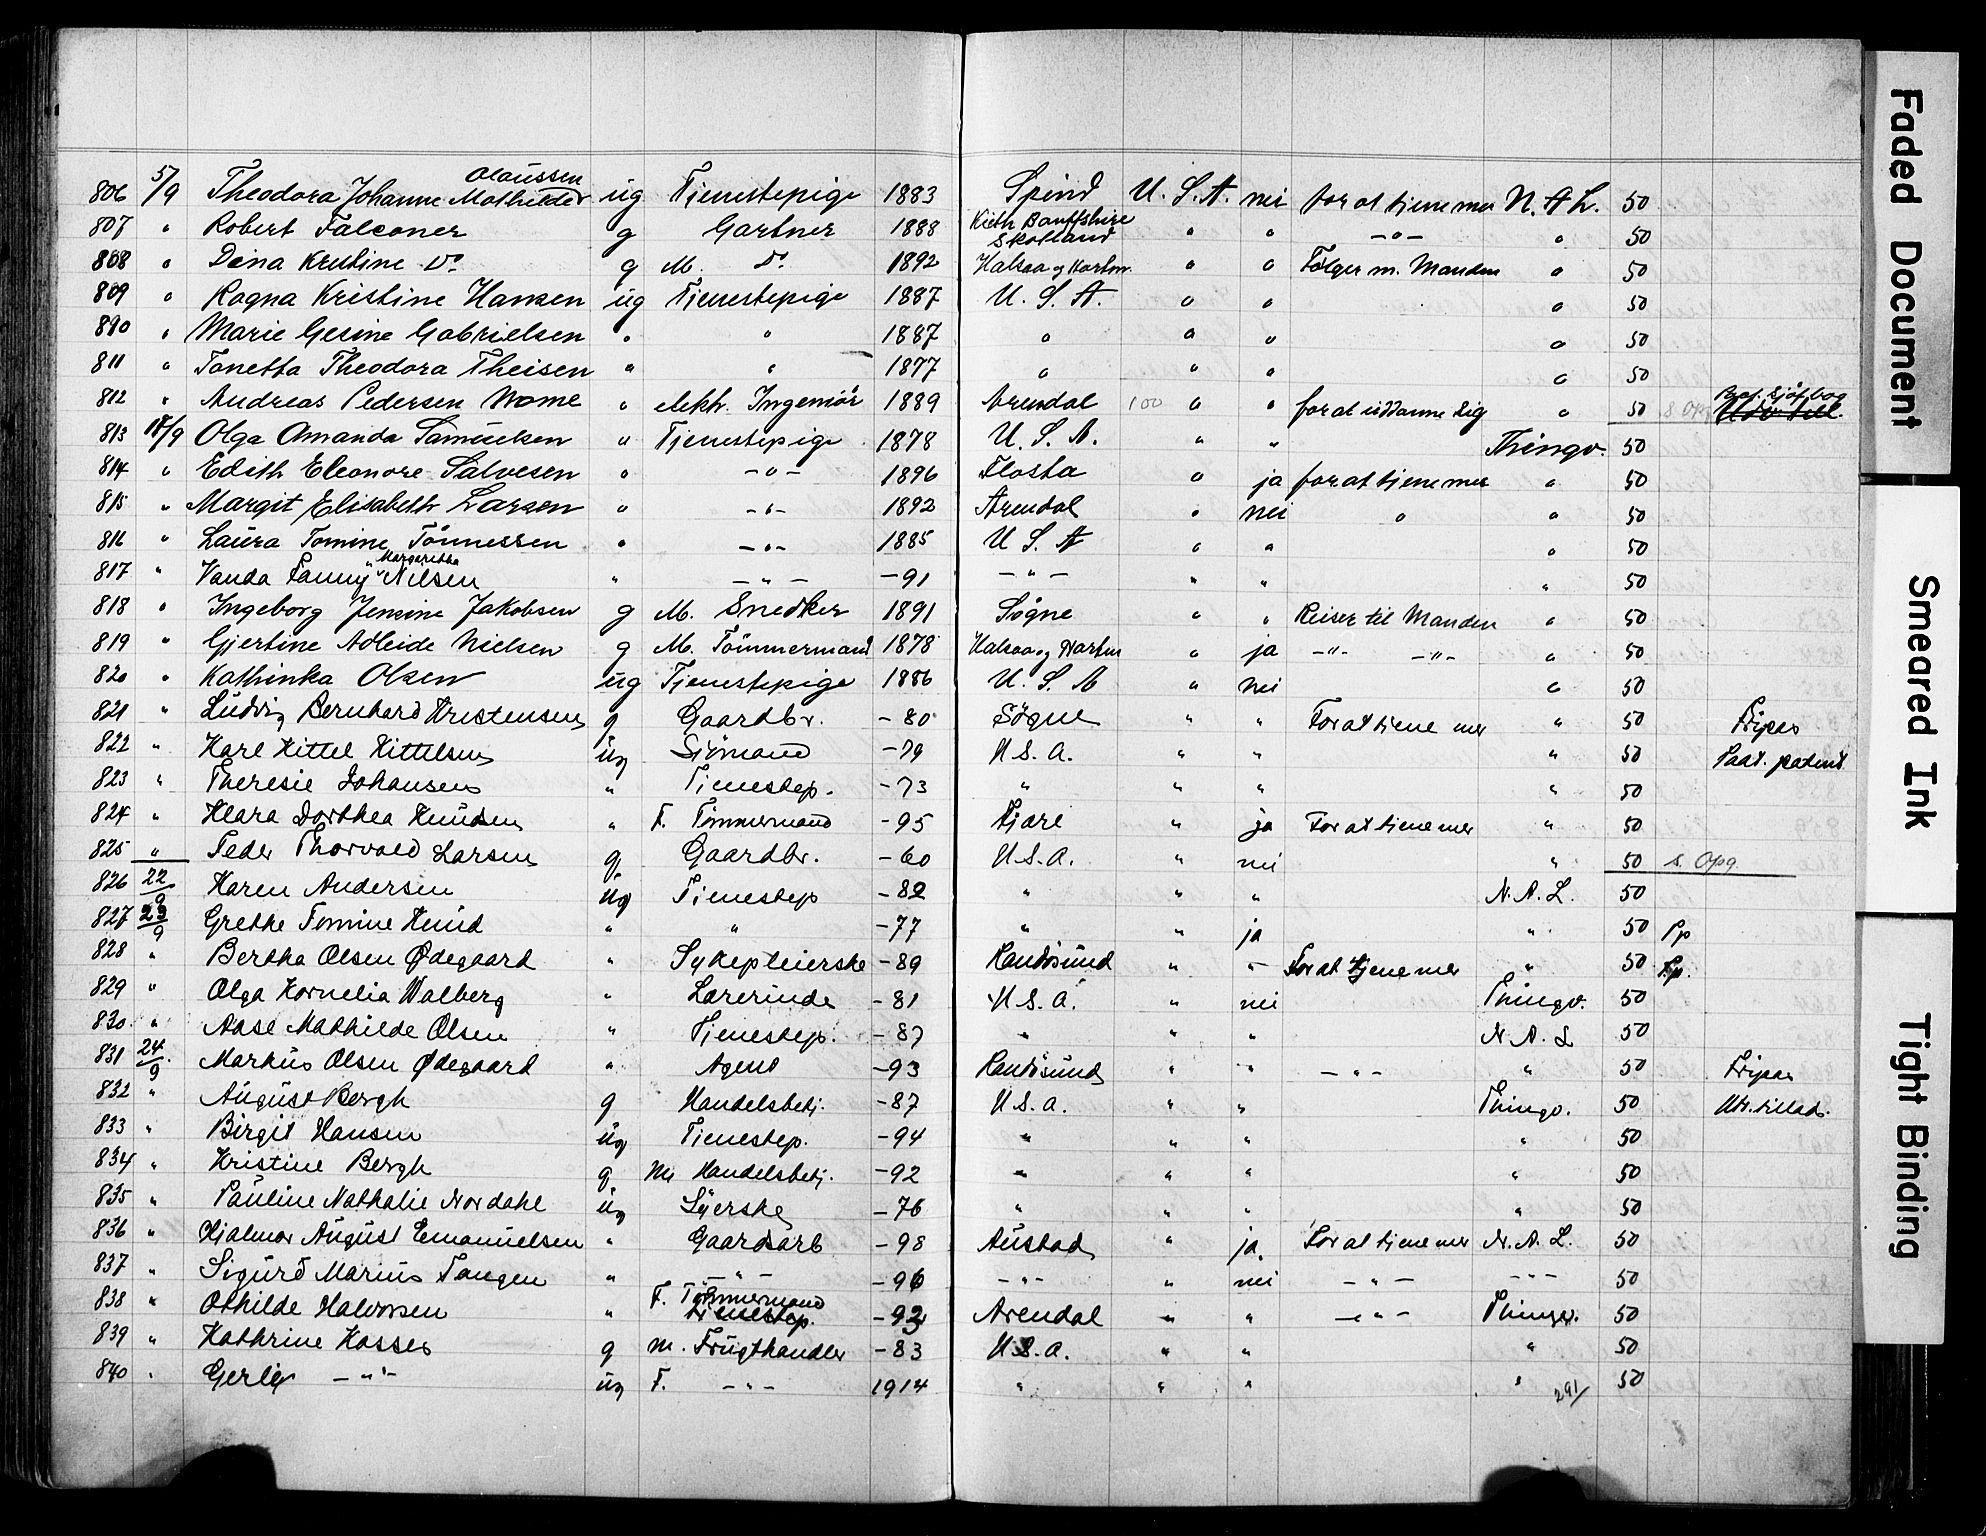 806 5/9 Theodora Johanne Mathilde Olaussen ug Tjenestepige 1883 Spind U. S. A. nei for at tjene mer N. A. L. 50
807 " Robert Falconer g Gartner 1888 Kieth Banffshire Skotland " " -"- " 50
808 " Dina Kristine Do g M. Do 1892 Halsaa og Hartm. " " Følger m. Manden " 50
809 " Ragna Kristine Hansen ug Tjenestepige 1887 U. S. A. " " " 50
810 " Marie Gesine Gabrielsen " " 1887 " " " " 50
811 " Tonetta Theodora Theisen " " 1877 " " " " 50
812 " Andreas Pedersen Wame " elekh. Ingeniør 1889 Arendal 100 " " for at uddanne sig " 50 s Opg. Sjøfbog
813 18/9 Olga Amanda Samuelsen " Tjenestepige 1878 U. S. A. " " Thingv. 50
814 " Edith Eleonore Salvesen " -"- 1896 Flosta " ja for at tjene mer " 50
815 " Margit Elisabeth Larsen " -"- 1892 Arendal " nei " " 50
816 " Laura Tomine Tönnessen " -"- 1885 U S. A " " " 50
817 " Vanda Fanny Margaretha Nilsen " -"- -91 -"- " " " 50
818 " Ingeborg Jensine Jakobsen g M. Snedker 1891 Søgne " " Reiser til Manden " 50
819 " Gjertine Adleide Nielsen g M. Tömmermand 1878 Halsaa og Hartm " ja -"- -"- " 50
820 " Kathinka Olsen ug Tjenestepige 1886 U. S. A " nei " 50
821 " Ludvig Bernhard Kristensen g Gaardbr. -80 Søgne " " For at tjene mer " 50 Fripas
822 " Karl Kittel Kittelsen ug Sjömand -79 U. S. A. " " " 50 Paat. patent
823 " Theresie Johansen " Tjenestep. -73 " " " " 50
824 " Klara Dorthea Knudsen " F. Tömmermand -95 Fjære " ja For at tjene mer " 50
825 " Peder Thorvald Larsen g Gaardbr. -60 U.S.A. " nei " 50 s. Opg.
826 22/9 Karen Andersen ug Tjenestep -82 " " " N. A. L. 50
827 23/9 Grethe Tomine Knud " " -77 " " ja " 50 Pp
828 " Bertha Olsen Ødegaard " Sykepleierske -89 Randösund " - For at tjene mer " 50 Pp.
829 " Olga Kornelia Walberg " Lærerinde -81 U. S. A. " nei Thingv. 50
830 " Aase Mathilde Olsen " Tjenestep. -87 " " " N. A. L 50
831 24/9 Markus Olsen Ødegaard " Agent -93 Randösund " " -"- " 50 Fripas
832 " August Bergh g Handelsbetj. -87 U. S. A. " " Thingv. 50 Utv. tillad.
833 " Birgit Hansen ug Tjenestep. -94 " " " " 50
834 " Kristine Bergh g. M Handelsbetj. -92 " " " " 50
835 " Pauline Nathalie Nordahl ug Syerske -76 " " " " 50
836 " Hjalmar August Emanuelsen " Gaardsarb -98 Austad " ja. For at tjene mer N. A. L. 50
837 " Sigurd Marius Tangen " -"- -96 -"- " nei -"- -"- 50
838 " Othilde Halvorsen " F. Tömmermand Tjenestep. -93 Arendal " " -"- Thingv. 50
839 " Kathrine Kosses g M. Frugthandler -83 U.S.A. " " " 50
840 " -"- ug F. -"- 1914 " " " " 50
291/
Faded Document
Smeared Ink
Tight Binding